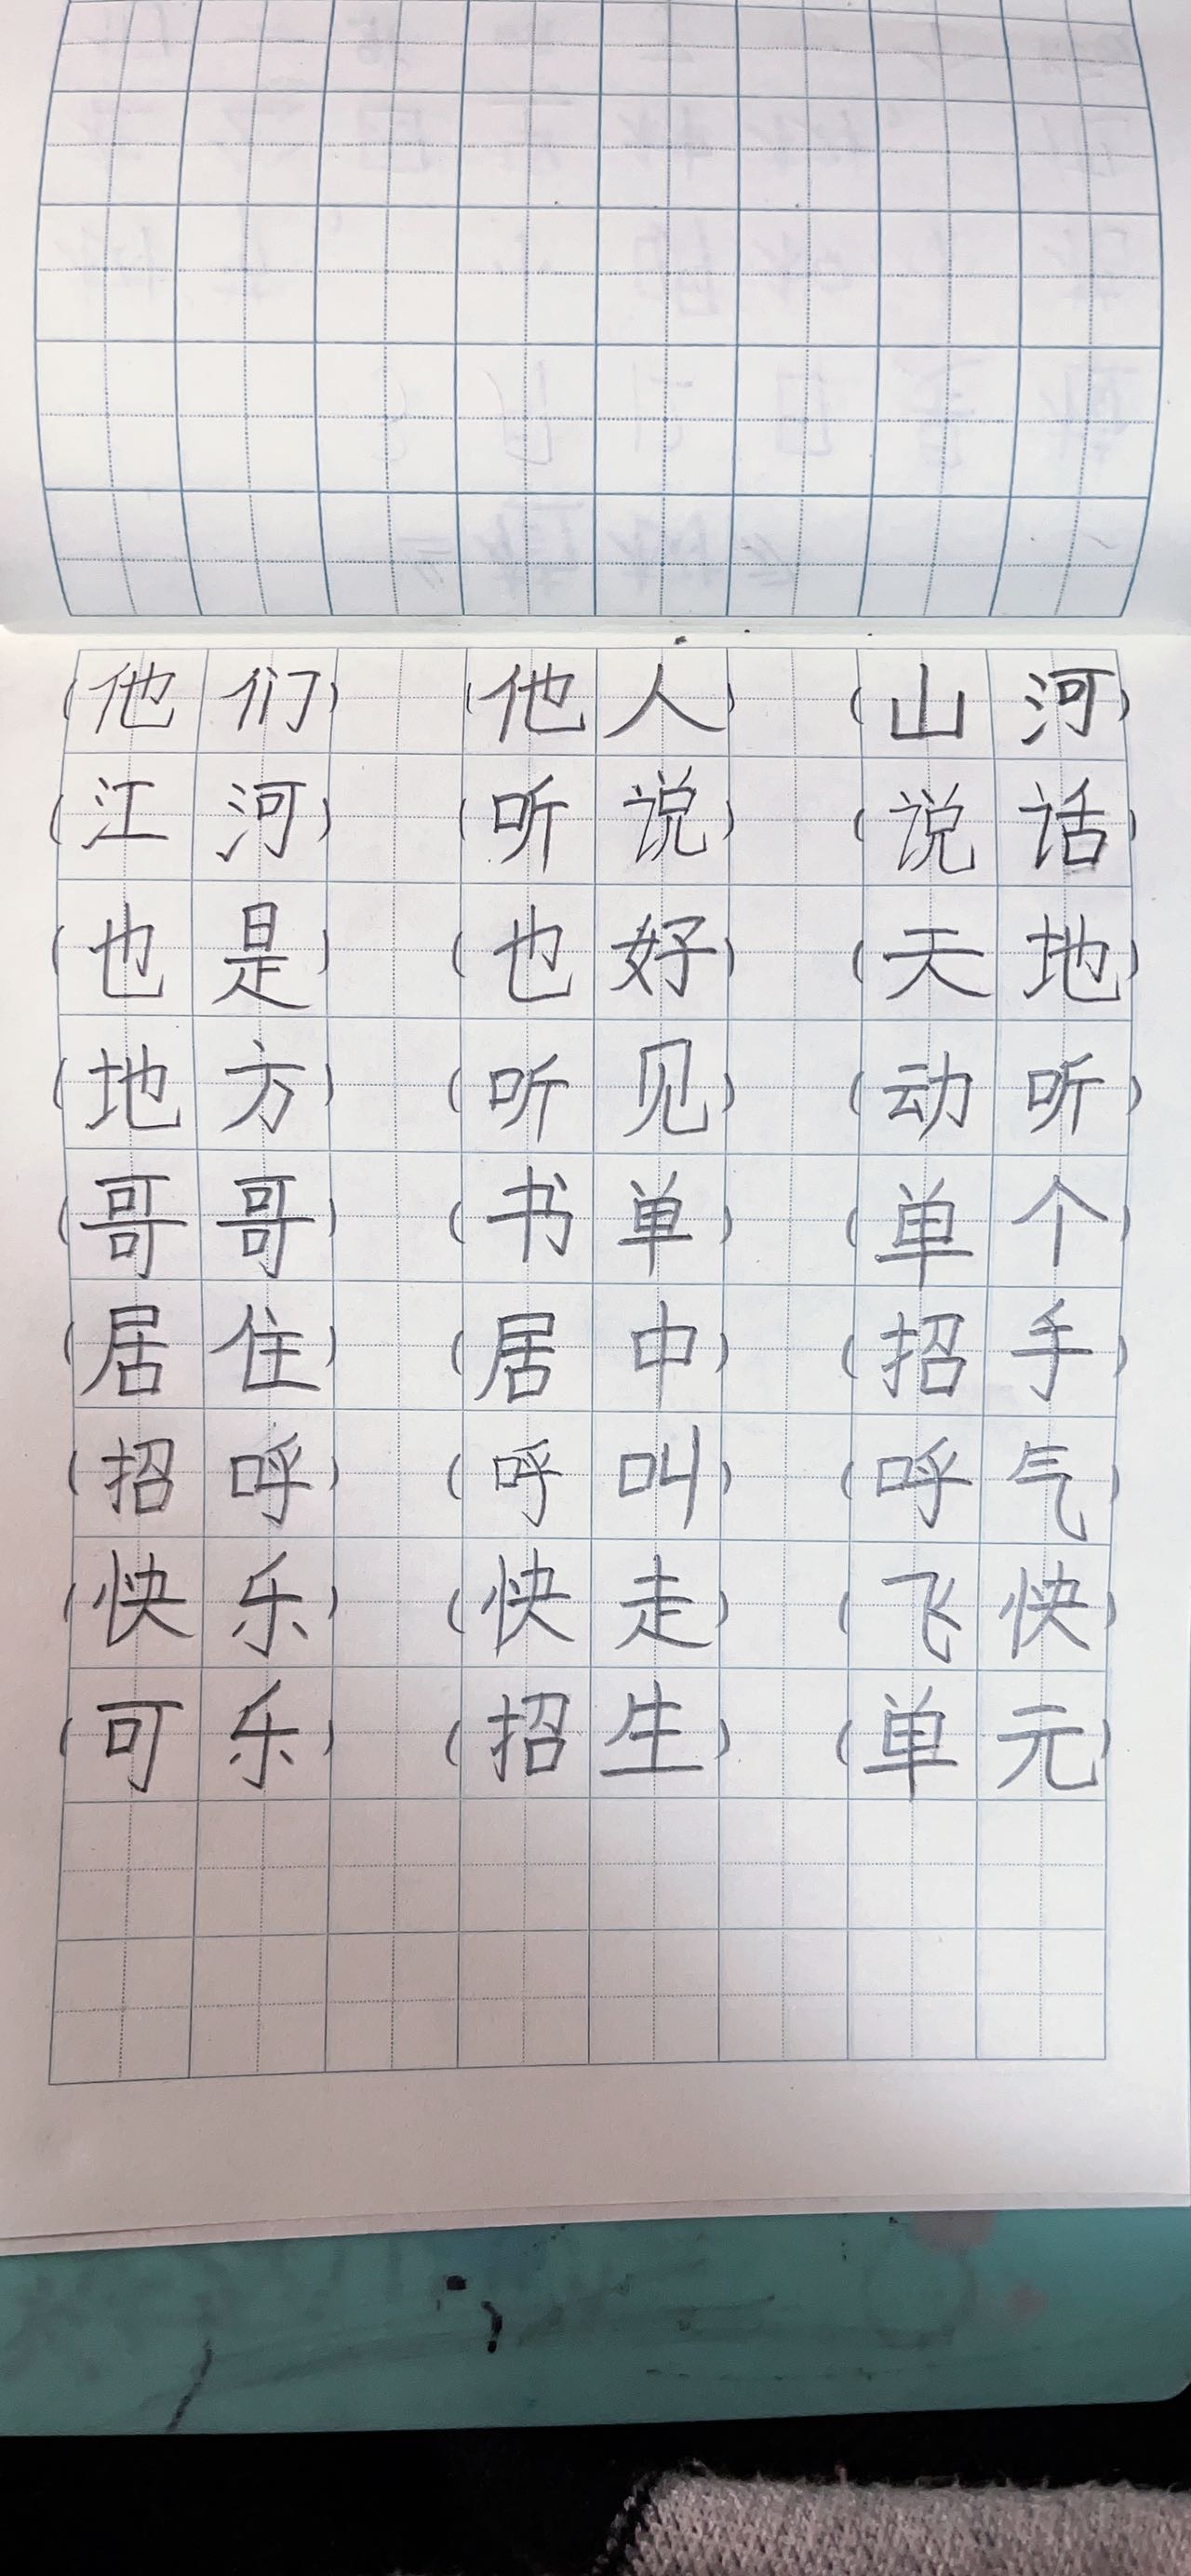 (他们) (他人) (山河)
(江河) (听说) (说话)
(也是) (也好) (天地)
(地方) (听见) (动听)
(哥哥) (书单) (单个)
(居住) (居中) (招手)
(招呼) (呼叫) (呼气)
(快乐) (快走) (飞快)
(可乐) (招生) (单元)